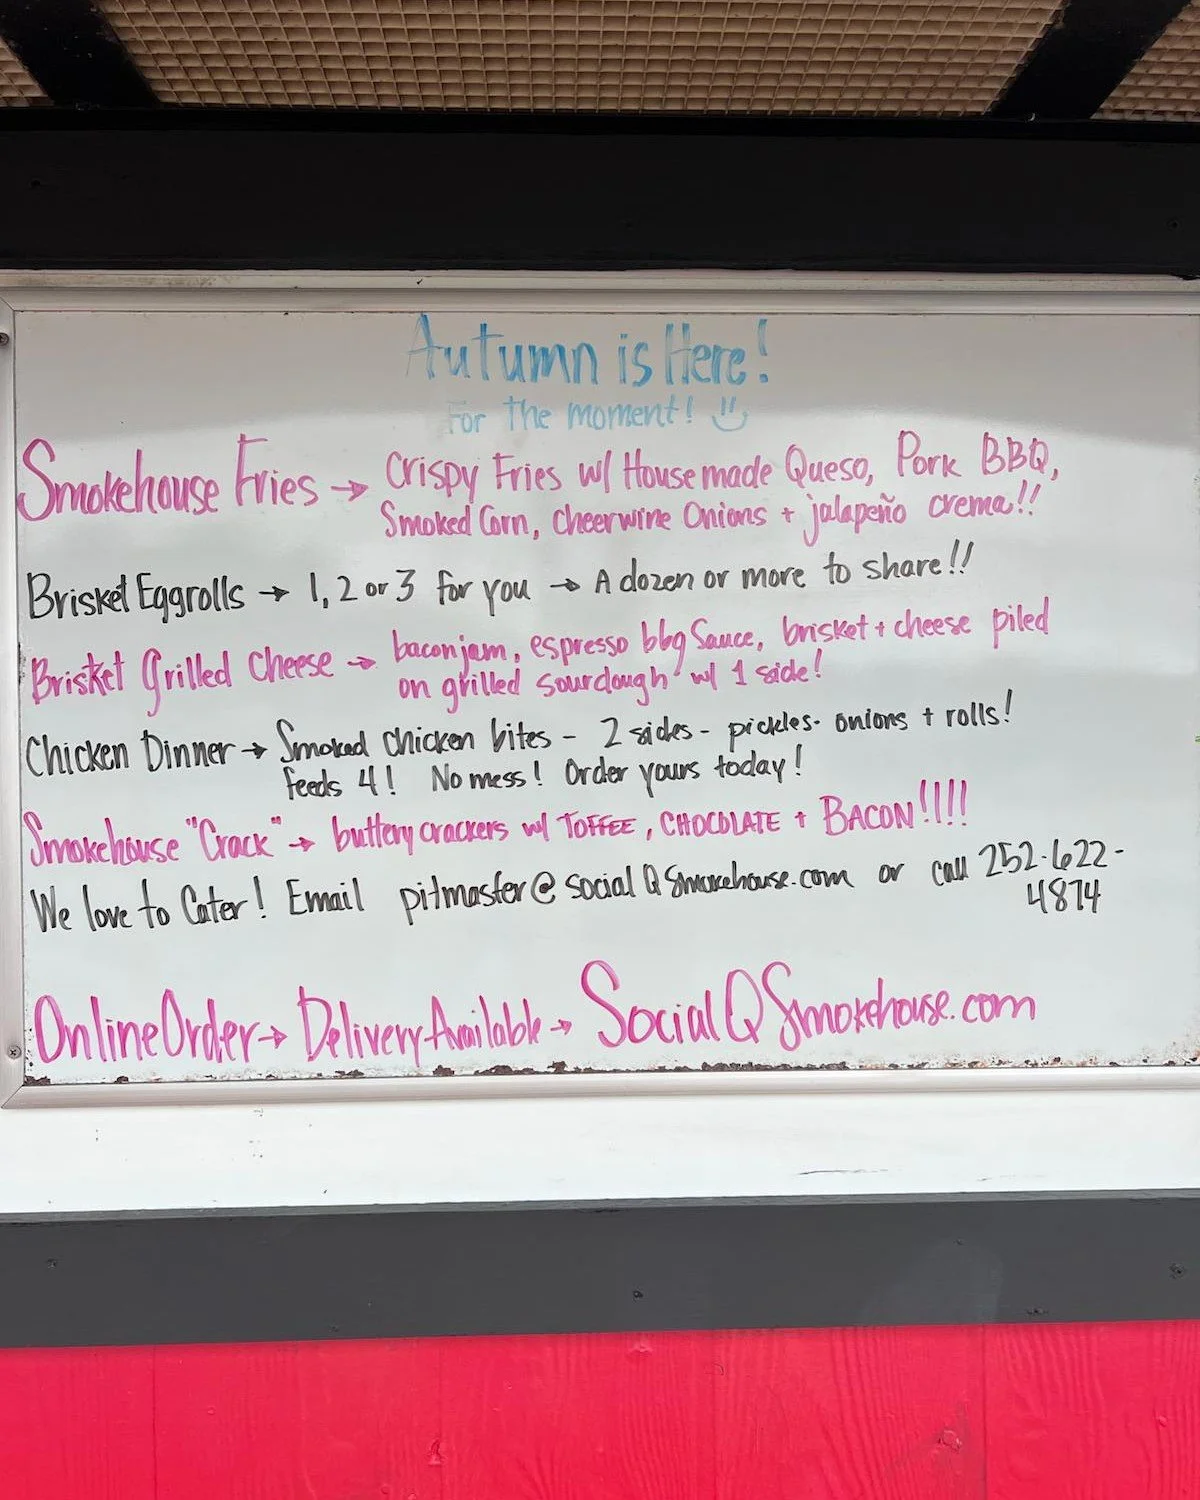 Autumn is Here!
For The moment!
Smokehouse Fries → Crispy Fries w/ Housemade Queso, Pork BBQ,
Smoked Corn, Cheerwine Onions + jalapeño crema!!
Brisket Eggrolls → 1, 2 or 3 for you → A dozen or more to share!!
Brisket Grilled Cheese → bacon jam, espresso bbq Sauce, brisket + cheese piled
on grilled sourdough w/ 1 side!
Chicken Dinner → Smoked chicken bites - 2 sides - pickles - onions + rolls!
Feeds 4! No mess! Order yours today!
Smokehouse "Crack" → buttery crackers w/ TOFFEE, CHOCOLATE + BACON!!!!
We love to Cater! Email pitmaster@socialQSmokehouse.com or call 252-622-
4874
Online Order → Delivery Available → SocialQSmokehouse.com